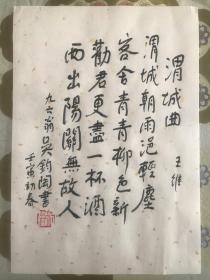 渭城曲
王維
渭城朝雨浥輕塵
客舍青青柳色新
勸君更盡一杯酒
西出陽關無故人
九六翁吳鈞陶書
壬寅初春